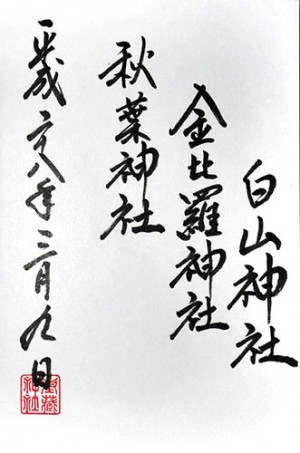 白山神社
金比羅神社
秋葉神社
平成二八年三月九日